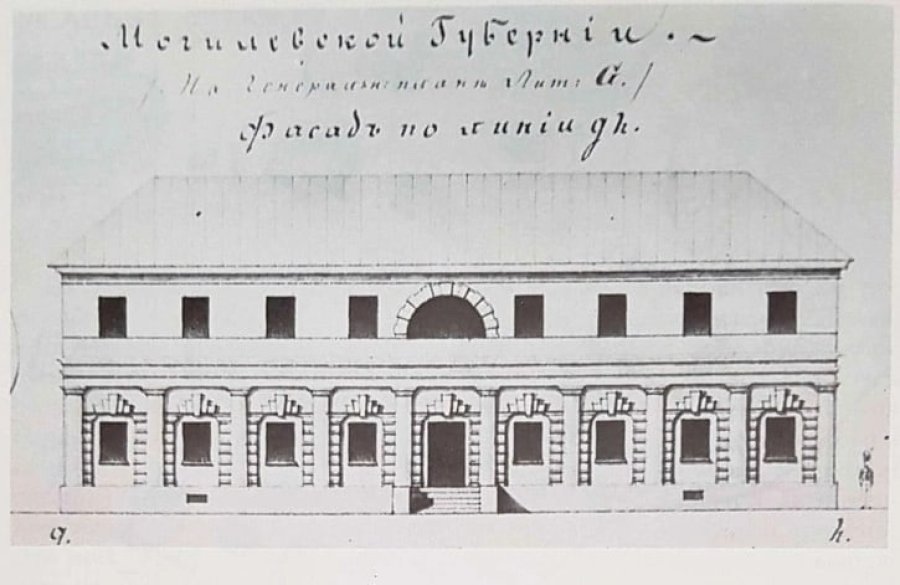 Могилевской Губерніи.
/На Генеральномъ планѣ Лит: G./
Фасадъ по линіи gh.
g. h.